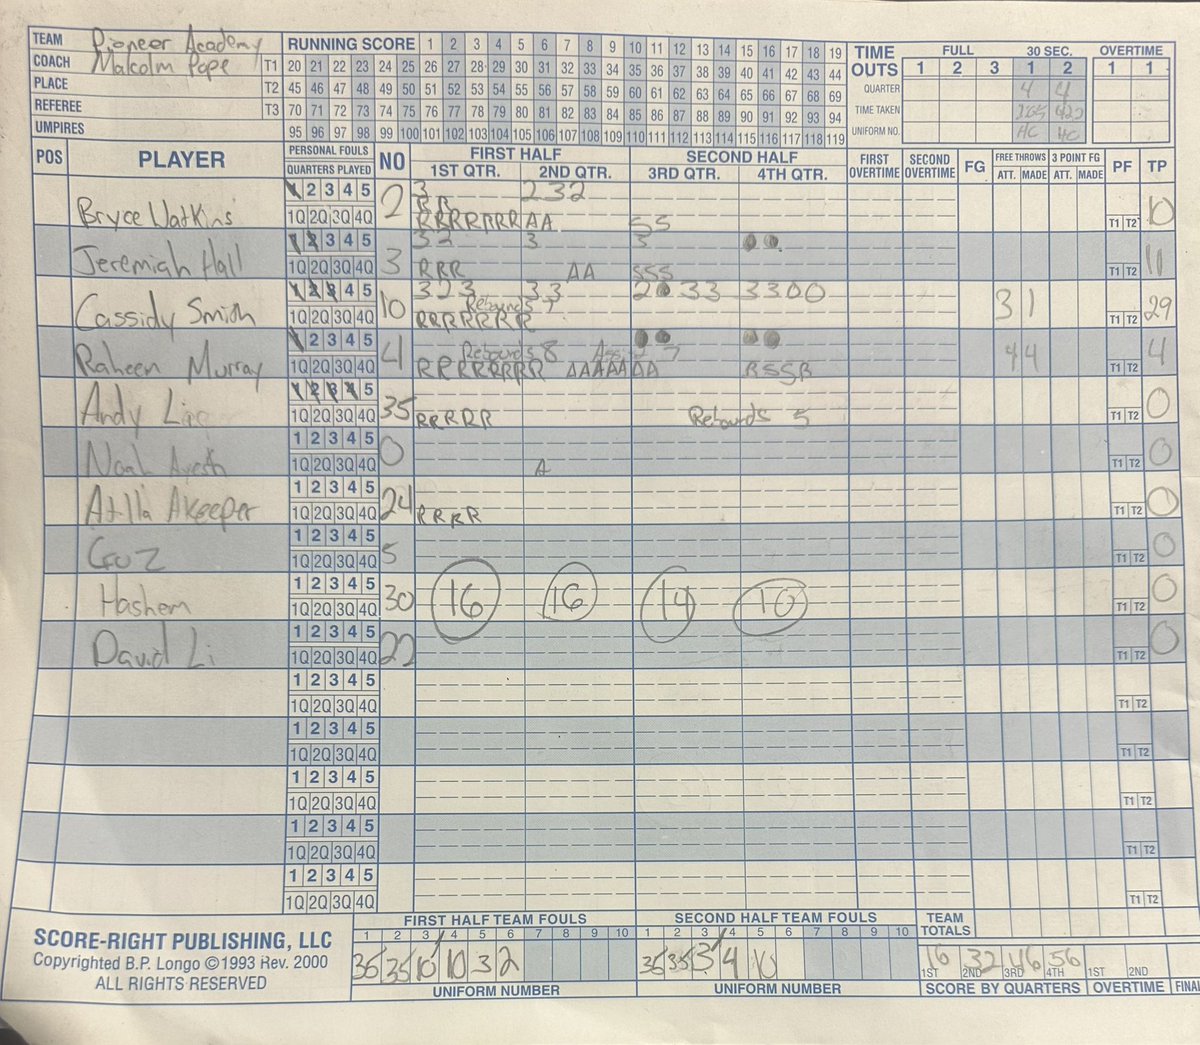 TEAM Pioneer Academy RUNNING SCORE 1 2 3 4 5 6 7 8 9 10 11 12 13 14 15 16 17 18 19 TIME OUTS FULL 30 SEC. OVERTIME
COACH Malcolm Pope T1 20 21 22 23 24 25 26 27 28 29 30 31 32 33 34 35 36 37 38 39 40 41 42 43 44 1 2 3 1 2 1 1
PLACE T2 45 46 47 48 49 50 51 52 53 54 55 56 57 58 59 60 61 62 63 64 65 66 67 68 69 QUARTER 4 4
REFEREE T3 70 71 72 73 74 75 76 77 78 79 80 81 82 83 84 85 86 87 88 89 90 91 92 93 94 TIME TAKEN
UMPIRES 95 96 97 98 99 100 101 102 103 104 105 106 107 108 109 110 111 112 113 114 115 116 117 118 119 UNIFORM NO. HC HC
POS PLAYER PERSONAL FOULS QUARTERS PLAYED NO FIRST HALF 1ST QTR. 2ND QTR. SECOND HALF 3RD QTR. 4TH QTR. FIRST OVERTIME SECOND OVERTIME FG FREE THROWS ATT. MADE 3 POINT FG ATT. MADE PF TP
1 2 3 4 5 3 2 3 2
RR
Bryce Watkins 1Q 2Q 3Q 4Q 2 RRRRRRR AA SS T1 T2 10
1 2 3 4 5 3 2 3 3
Jeremiah Hall 1Q 2Q 3Q 4Q 3 RRR AA SSS T1 T2 11
1 2 3 4 5 3 2 3 3 3 2 3 3 3 3 0 0
Rebounds 7
Cassidy Smith 1Q 2Q 3Q 4Q 10 RRRRRRR 3 1 T1 T2 29
1 2 3 4 5
Rebounds 8 7
Raheen Murray 1Q 2Q 3Q 4Q 4 RRRRRRRR AAAAA AA BSSB 4 4 T1 T2 4
1 2 3 4 5
Andy 1Q 2Q 3Q 4Q 35 RRRRR Rebounds 5 T1 T2 0
1 2 3 4 5
Noah 1Q 2Q 3Q 4Q 0 A T1 T2 0
1 2 3 4 5
Atilla Akeeper 1Q 2Q 3Q 4Q 24 RRRR T1 T2 0
1 2 3 4 5
Guz 1Q 2Q 3Q 4Q 5 T1 T2 0
1 2 3 4 5
Hashem 1Q 2Q 3Q 4Q 30 16 16 14 10 T1 T2 0
1 2 3 4 5
David Li 1Q 2Q 3Q 4Q 22 T1 T2 0
1 2 3 4 5
1Q 2Q 3Q 4Q T1 T2
1 2 3 4 5
1Q 2Q 3Q 4Q T1 T2
1 2 3 4 5
1Q 2Q 3Q 4Q T1 T2
1 2 3 4 5
1Q 2Q 3Q 4Q T1 T2
1 2 3 4 5
1Q 2Q 3Q 4Q T1 T2
FIRST HALF TEAM FOULS SECOND HALF TEAM FOULS TEAM TOTALS
1 2 3 4 5 6 7 8 9 10 1 2 3 4 5 6 7 8 9 10
35 35 10 10 3 2 35 35 3 4 10 16 32 46 56
1ST 2ND 3RD 4TH 1ST 2ND
UNIFORM NUMBER UNIFORM NUMBER SCORE BY QUARTERS OVERTIME FINAL
SCORE-RIGHT PUBLISHING, LLC
Copyrighted B.P. Longo ©1993 Rev. 2000
ALL RIGHTS RESERVED